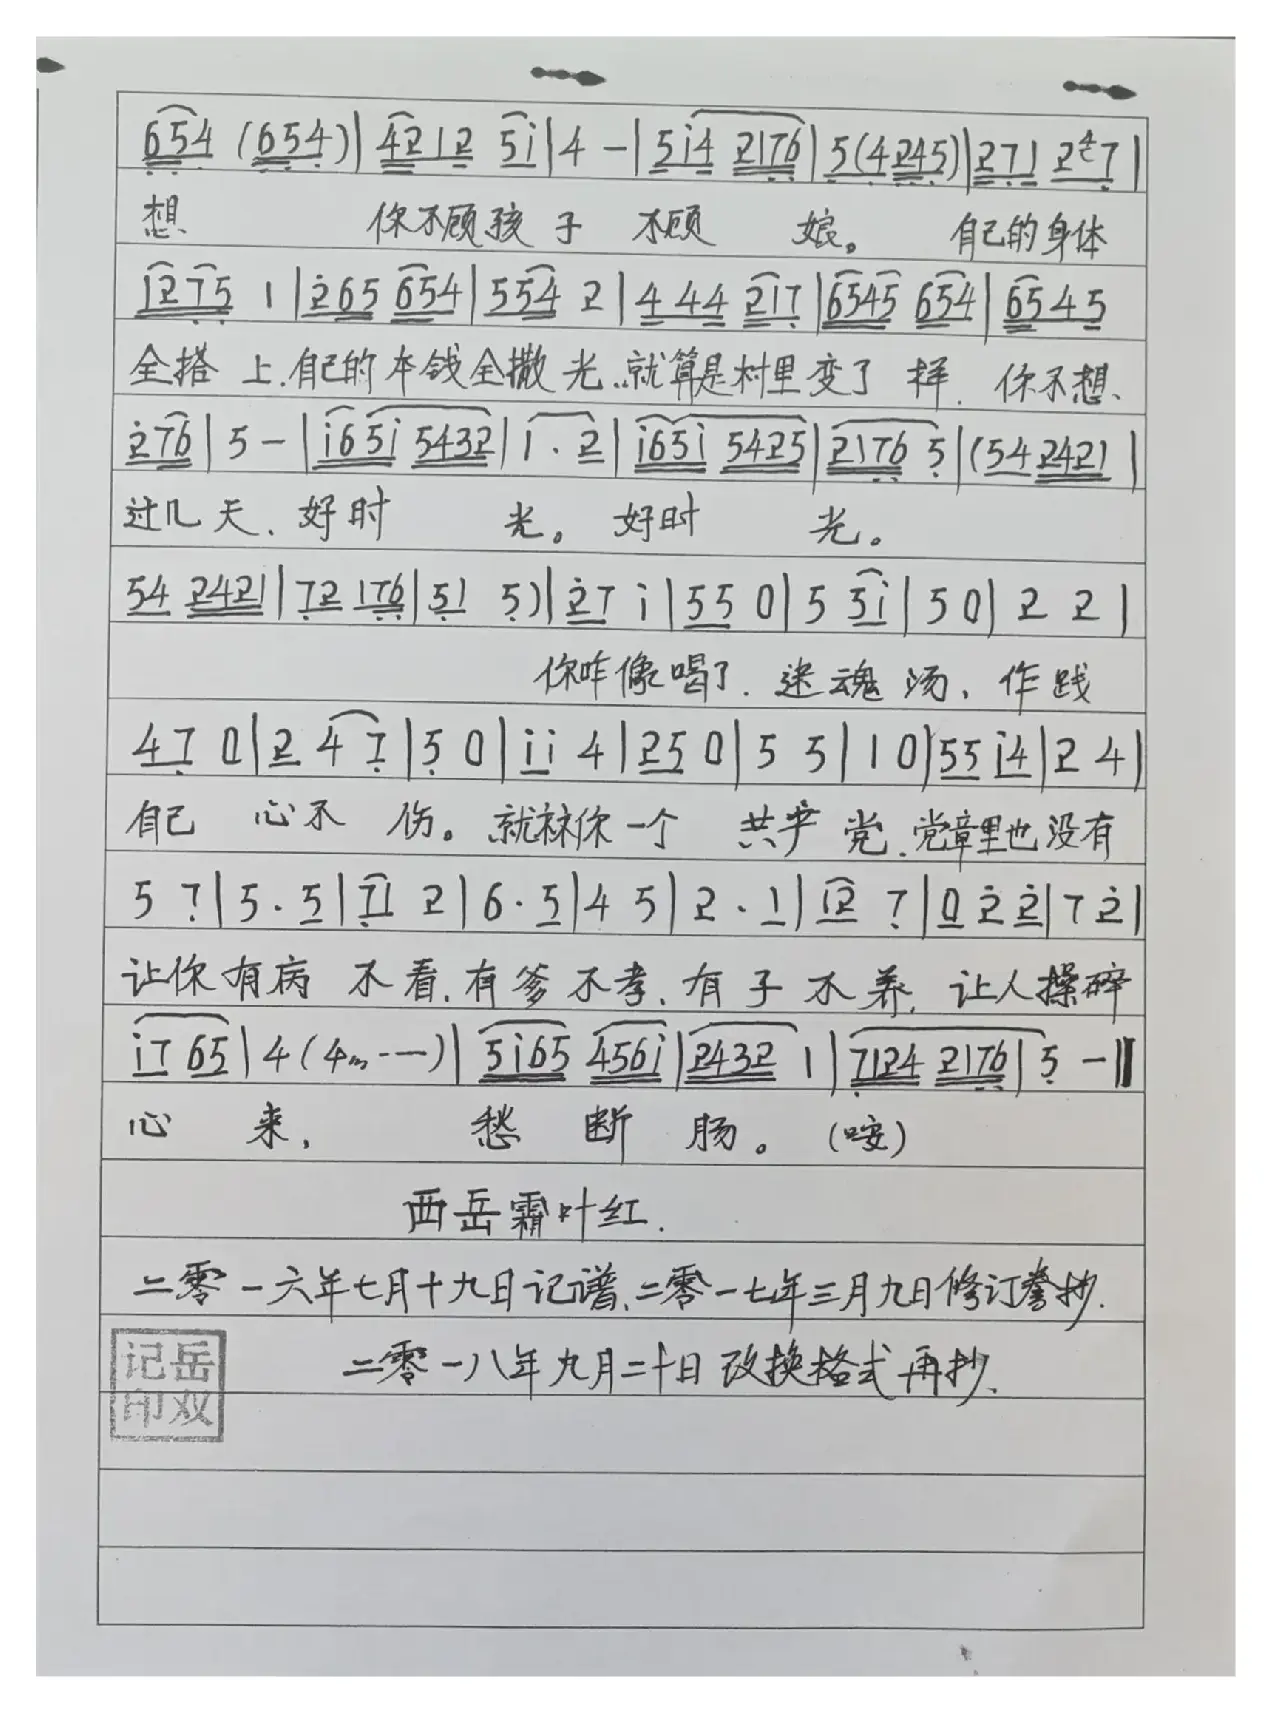 654 (654)|4212 5i|4 -|5i4 2176|5(4245)|271 2⁴7|
想 你不顾孩子 不顾 娘。 自己的身体
i275 1|265 654|554 2|4 44 217|6545 654|6545
全搭 上.自己的本钱全撒光..就算是村里变了 样. 你不想、
276|5 -|i65i 5432|i · 2|i65i 5425|2176 5|(54 2421|
过几天.好时 光。好时 光。
54 2421|72 176|51 5)|27 i|55 0|5 5i|50|2 2|
你咋像喝了. 迷魂汤、作践
47 0|2 47|5 0|ii 4|25 0|5 5|1 0|55 i4|2 4|
自己 心不 伤。就你一个 共产党.党章里也没有
5 7|5 · 5|71 2|6 · 5|4 5|2 · 1|i2 7|0 2 2|7 2|
让你有病 不看.有爹不孝、有子不养. 让人操碎
i7 65|4 (4 - —)|5i65 456i|2432 1|7124 2176|5 -‖
心 来, 愁 断 肠。(咹)
西岳霜叶红.
二零一六年七月十九日记谱、二零一七年三月九日修订誊抄.
二零一八年九月二十日改换格式再抄.
记岳
印双